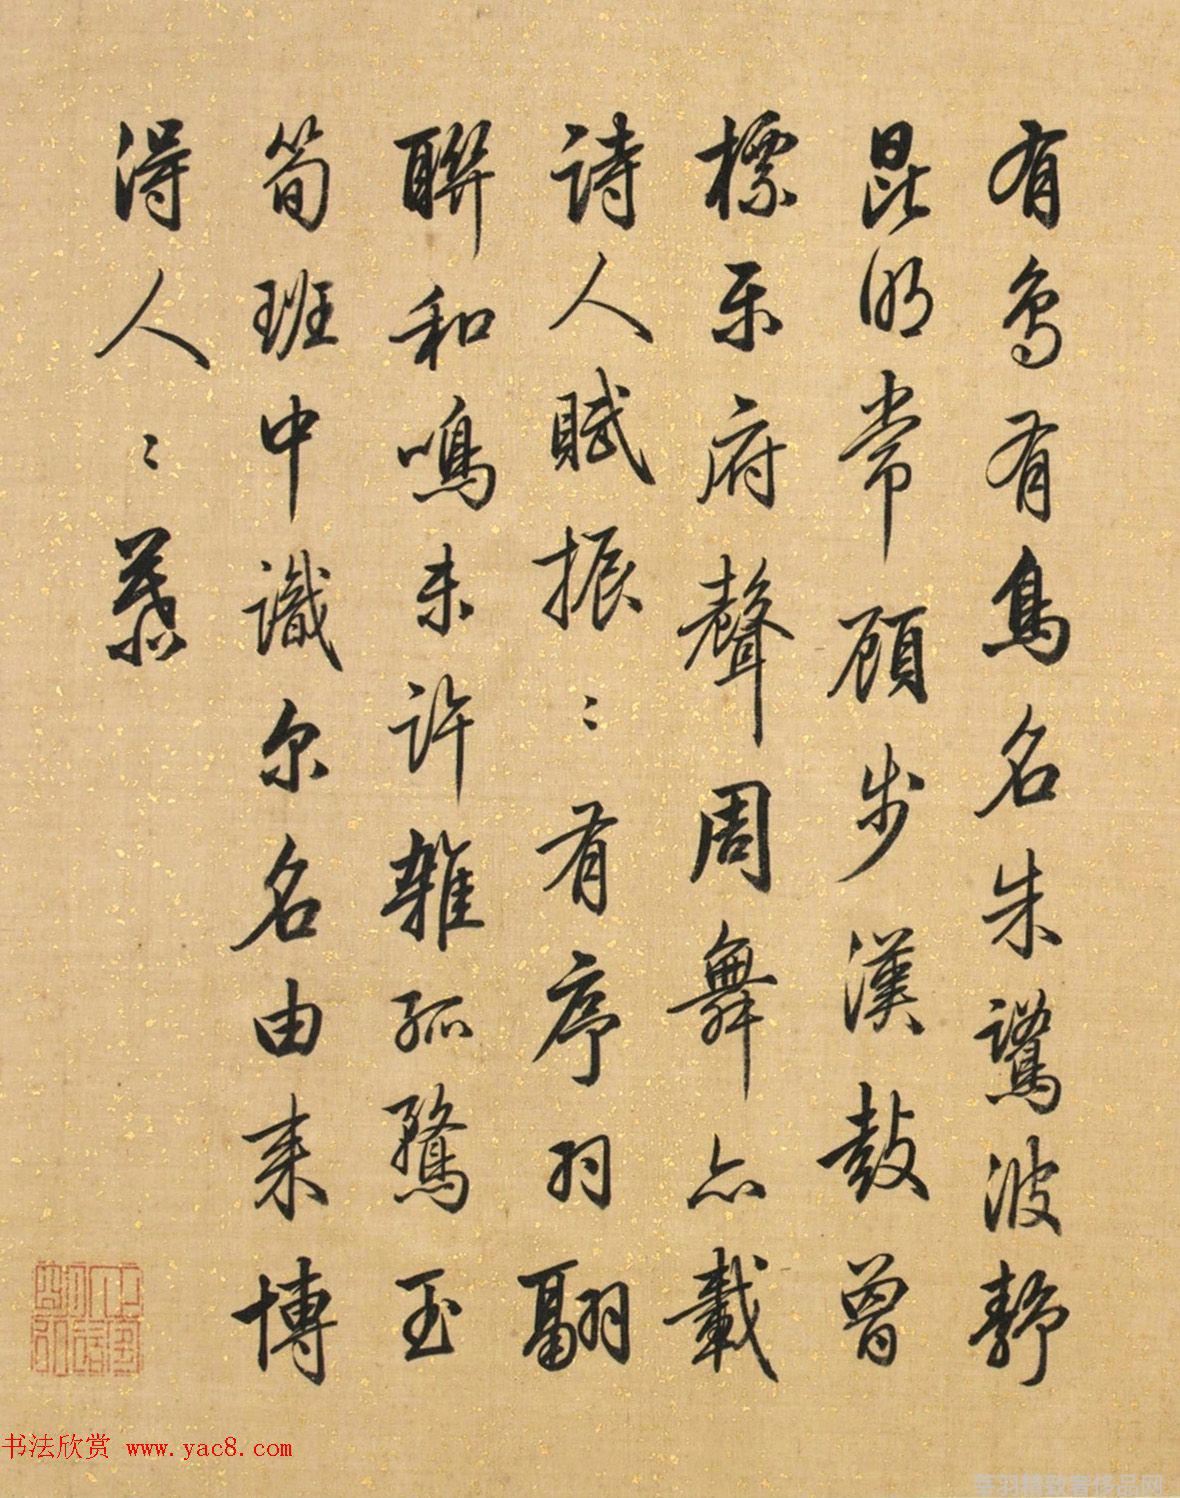 有鳥有鳥名朱鷺波靜
昆明常顧步漢鼓曾
標樂府聲周舞亦載
詩人賦振〻有序羽翮
聯和鳴未許雜孤鶩玉
筍班中識尔名由來博
得人〻慕
书法欣赏 www.yac8.com
羽精致奢侈品网